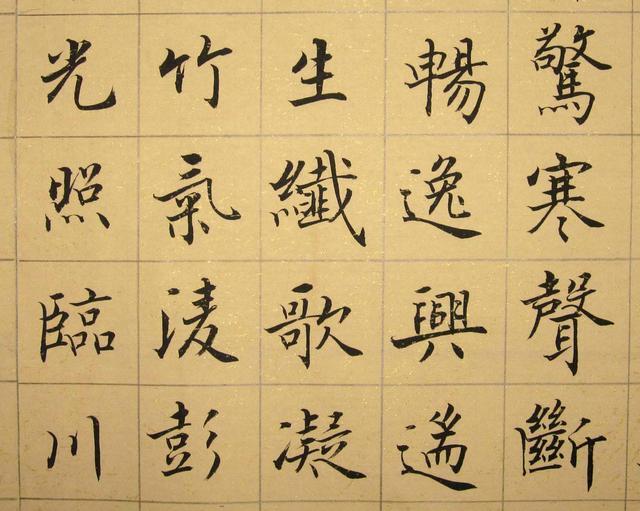 驚寒聲斷
暢逸興遄
生纖歌凝
竹氣淩彭
光照臨川